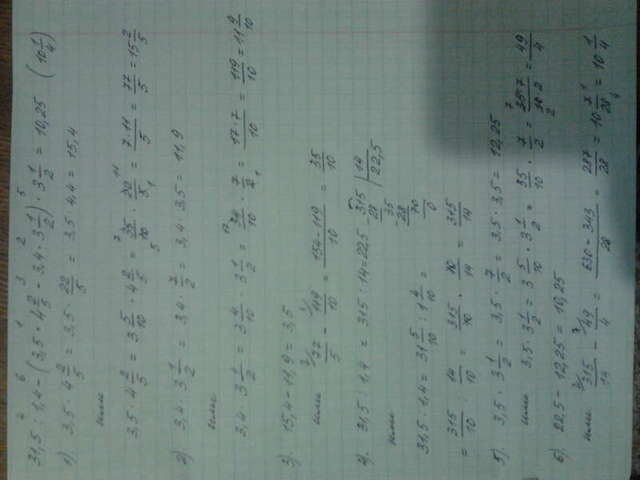 4 6 1 3 2 5
31,5 : 1,4 - (3,5 · 4 2/5 - 3,4 · 3 1/2) · 3 1/2 = 10,25 (10 1/4)
1) 3,5 · 4 2/5 = 3,5 · 22/5 = 3,5 · 4,4 = 15,4
или
3,5 · 4 2/5 = 3 5/10 · 4 2/5 = 35/10 · 22/5 = 7·11/5 = 77/5 = 15 2/5
2) 3,4 · 3 1/2 = 3,4 · 7/2 = 3,4 · 3,5 = 11,9
или
3,4 · 3 1/2 = 3 4/10 · 3 1/2 = 34/10 · 7/2 = 17·7/10 = 119/10 = 11 9/10
3) 15,4 - 11,9 = 3,5
или 77/5 - 119/10 = 154-119/10 = 35/10
4) 31,5 : 1,4 = 315 : 14 = 22,5
315 | 14
28 22,5
35
28
70
0
или
31,5 : 1,4 = 31 5/10 : 1 4/10 =
= 315/10 : 14/10 = 315/10 · 10/14 = 315/14
5) 3,5 · 3 1/2 = 3,5 · 7/2 = 3,5 · 3,5 = 12,25
или 3,5 · 3 1/2 = 3 5/10 · 3 1/2 = 35/10 · 7/2 = 35·7/10·2 = 49/4
6) 22,5 - 12,25 = 10,25
или 315/14 - 49/4 = 630-343/28 = 287/28 = 10 7/28 = 10 1/4